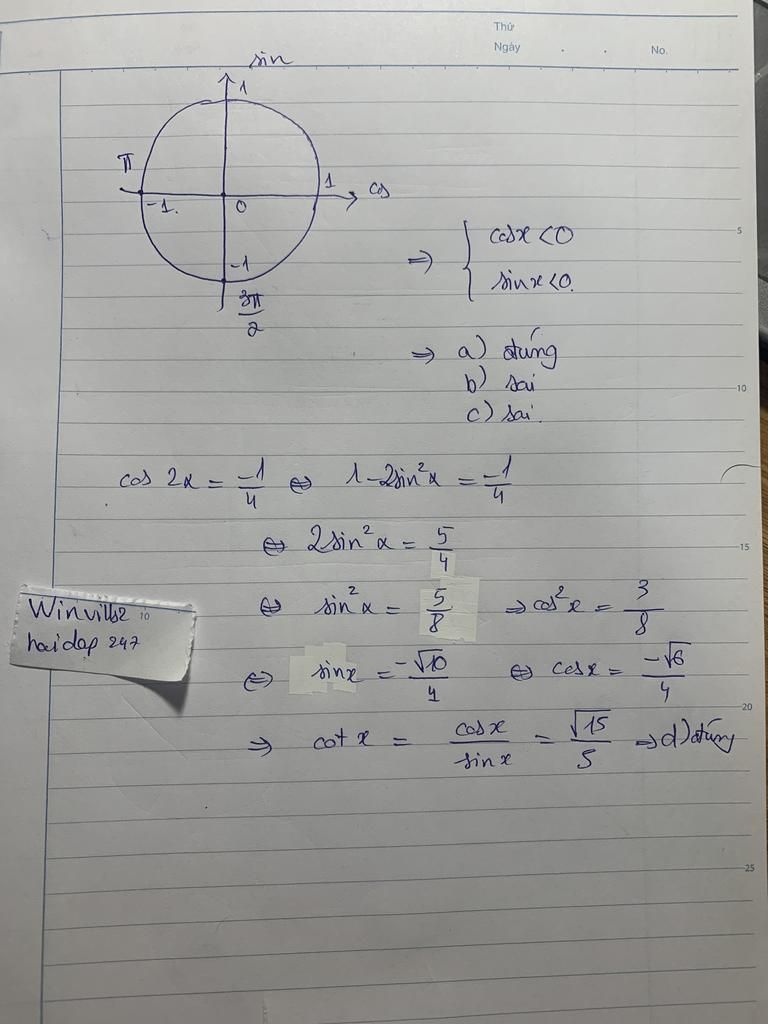 Thứ
Ngày . . No.
sin
1
π
1
cos
-1.
0
-1
3π/2
⇒ { cosx <0
sinx <0.
5
⇒ a) đúng
b) sai
10
c) sai.
cos 2x = -1/4 ⇔ 1-2sin²x = -1/4
⇔ 2sin²x = 5/4
15
⇔ sin²x = 5/8 ⇒ cos²x = 3/8
Winvills2 10
hoidap 247
⇔ sinx = -√10/4 ⇔ cosx = -√6/4
20
⇒ cot x = cosx/sinx = √15/5 ⇒ d) đúng
25